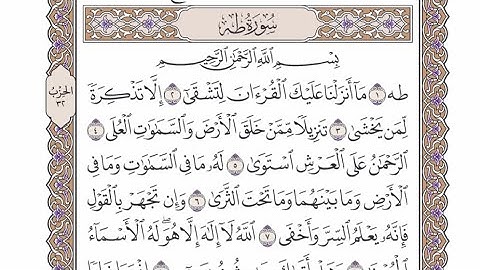 سُورَةُ طه
بِسْمِ اللَّهِ الرَّحْمَٰنِ الرَّحِيمِ
طه ١ مَا أَنزَلْنَا عَلَيْكَ الْقُرْءَانَ لِتَشْقَىٰ ٢ إِلَّا تَذْكِرَةً
الحِزْبُ ٣٢
لِّمَن يَخْشَىٰ ٣ تَنزِيلًا مِّمَّنْ خَلَقَ الْأَرْضَ وَالسَّمَٰوَٰتِ الْعُلَى ٤
الرَّحْمَٰنُ عَلَى الْعَرْشِ اسْتَوَىٰ ٥ لَهُ مَا فِي السَّمَٰوَٰتِ وَمَا فِي
الْأَرْضِ وَمَا بَيْنَهُمَا وَمَا تَحْتَ الثَّرَىٰ ٦ وَإِن تَجْهَرْ بِالْقَوْلِ
فَإِنَّهُ يَعْلَمُ السِّرَّ وَأَخْفَى ٧ اللَّهُ لَا إِلَٰهَ إِلَّا هُوَ لَهُ الْأَسْمَاءُ